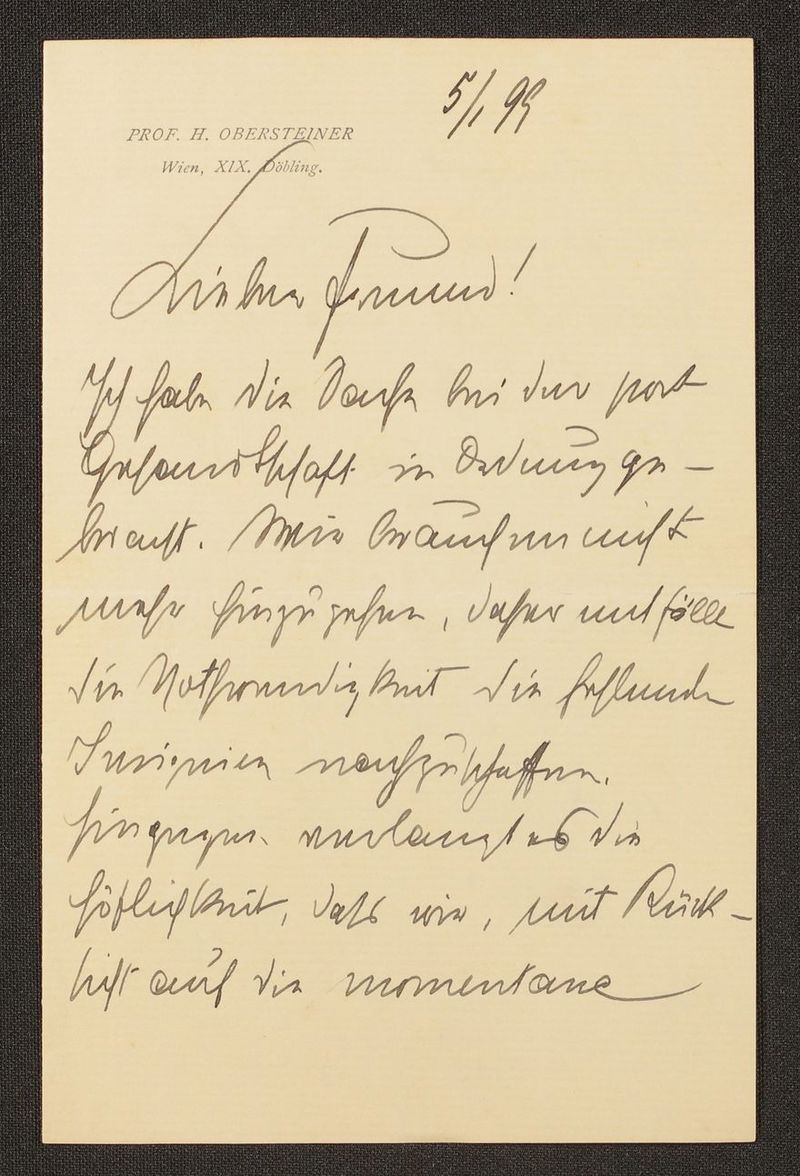 5/1 99
PROF. H. OBERSTEINER
Wien, XIX. Döbling.
Lieber Freund!
Ich habe die Sache bei der port
Gesandtschaft in Ordnung ge-
bracht. Wir brauchen nicht
mehr hinzugehen, daher entfällt
die Nothwendigkeit die fehlenden
Insignien nachzuschaffen.
Hingegen verlangt es die
Höflichkeit, daß wir, mit Rück-
sicht auf die momentane